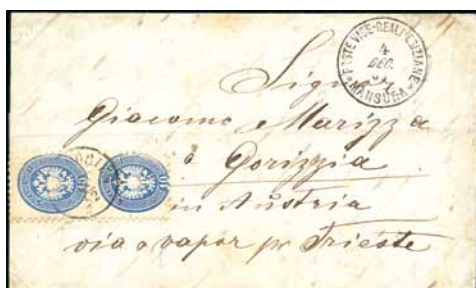 POSTE VICE-REALI EGIZIANE
4
DEC.
MANSURA
Signor
Giacomo Marizza
à Gorizzia
in Austria
via o vapor pr Trieste
10